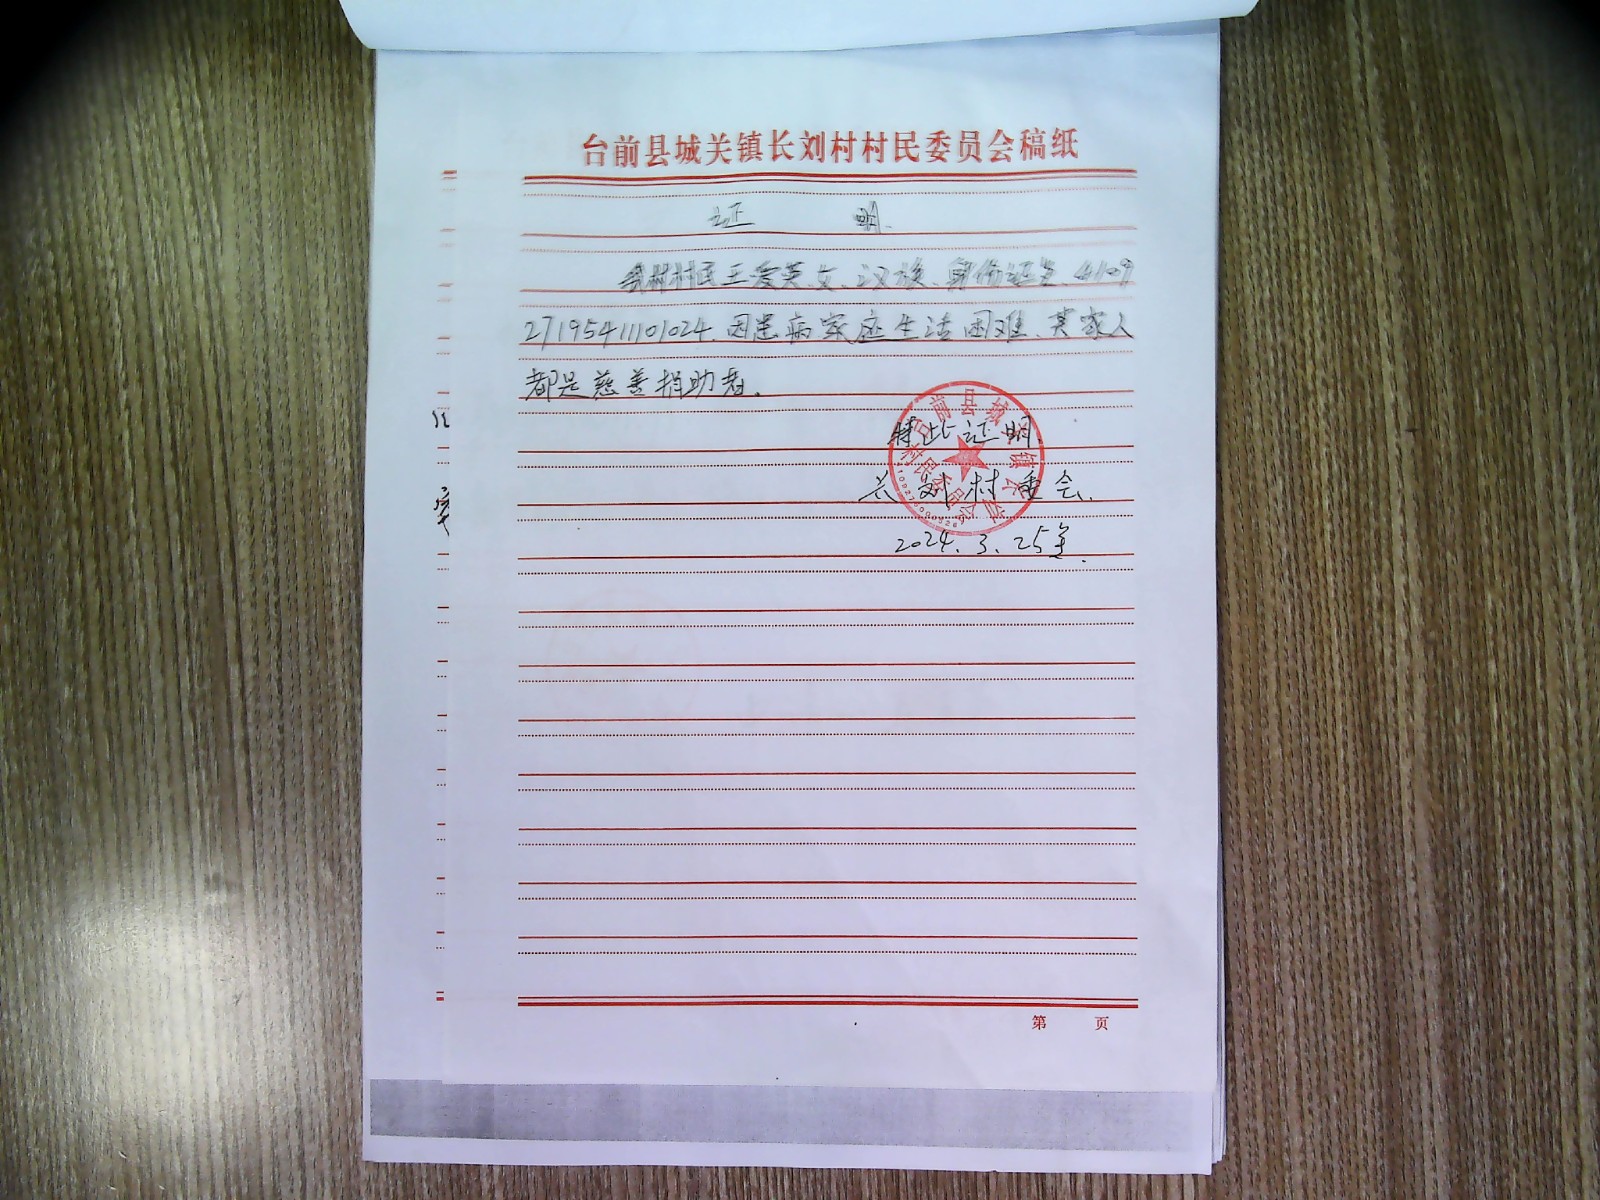 台前县城关镇长刘村村民委员会稿纸
证 明.
我村村民王爱英、女、汉族、身份证号、4109
27195411101024、因患病家庭生活困难、其家人
都是慈善捐助者。
特此证明.
长刘村委会.
2024.3.25号.
第 页